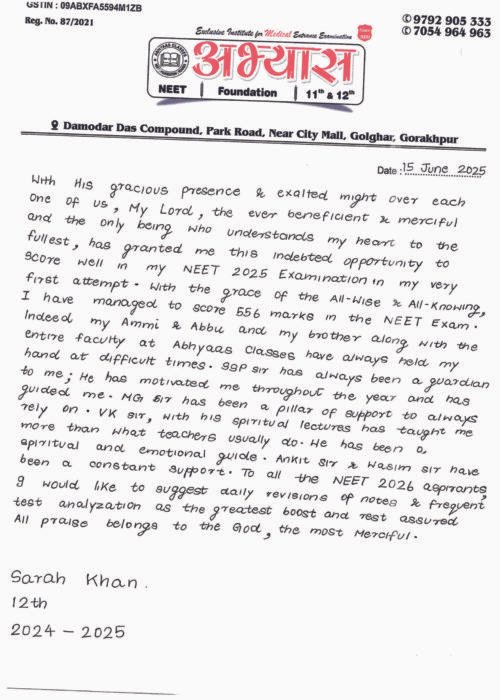 GSTIN : 09ABXFA5594M1ZB
Reg. No. 87/2021
✆ 9792 905 333
✆ 7054 964 963
Exclusive Institute for Medical Entrance Examination
अभ्यास
NEET | Foundation | 11th & 12th
Damodar Das Compound, Park Road, Near City Mall, Golghar, Gorakhpur
Date : 15 June 2025
With His gracious presence & exalted might over each
one of us, My Lord, the ever beneficient & merciful
and the only being who understands my heart to the
fullest, has granted me this indebted opportunity to
score well in my NEET 2025 Examination in my very
first attempt. With the grace of the All-Wise & All-Knowing,
I have managed to score 556 marks in the NEET Exam.
Indeed my Ammi & Abbu and my brother along with the
entire faculty at Abhyaas Classes have always held my
hand at difficult times. SSP sir has always been a guardian
to me; He has motivated me throughout the year and has
guided me. MG sir has been a pillar of support to always
rely on. VK sir, with his spiritual lectures has taught me
more than what teachers usually do. He has been a
spiritual and emotional guide. Ankit sir & Wasim sir have
been a constant support. To all the NEET 2026 aspirants,
I would like to suggest daily revisions of notes & frequent
test analyzation as the greatest boost and rest assured
All praise belongs to the God, the most Merciful.
Sarah Khan.
12th
2024 - 2025